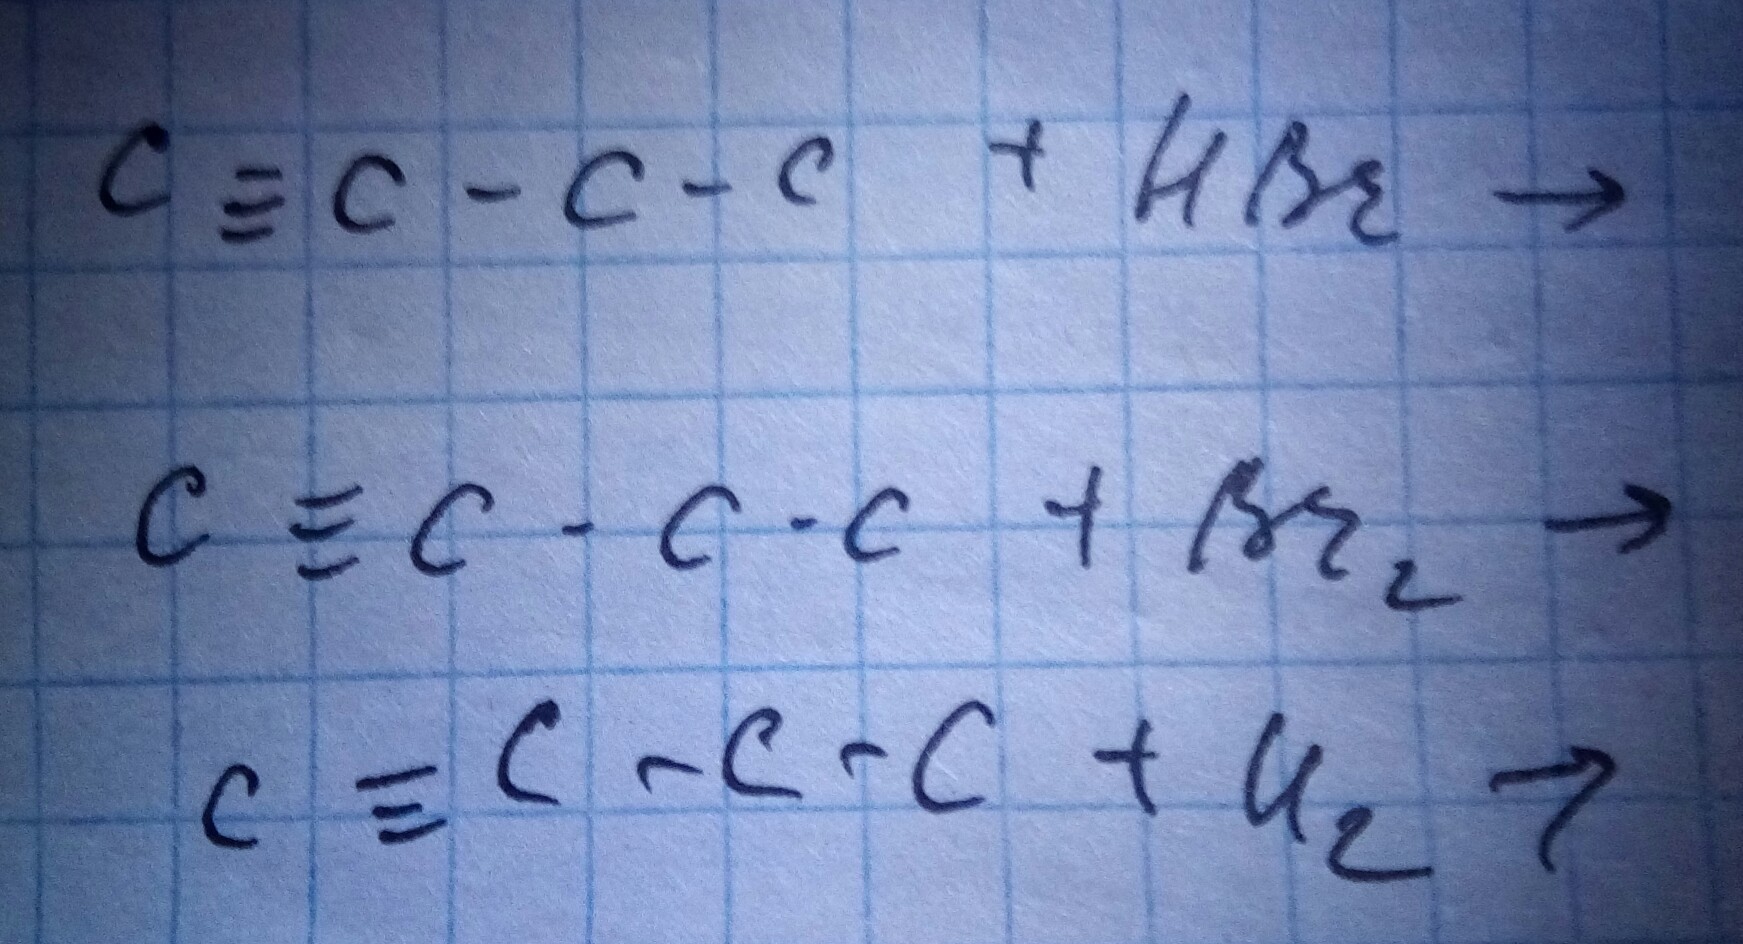 C ≡ C - C - C + HBr →
C ≡ C - C - C + Br₂ →
C ≡ C - C - C + H₂ →